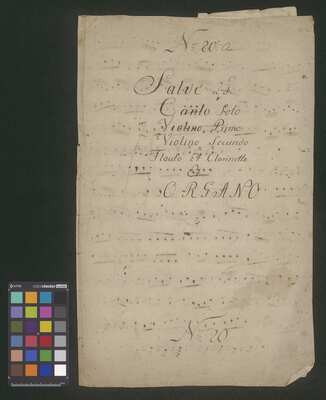 No 20 a
Salve a
Canto Solo
Violino Primo
Violino Secundo
Flauto et Clarinetto
Et
ORGANO
No 20